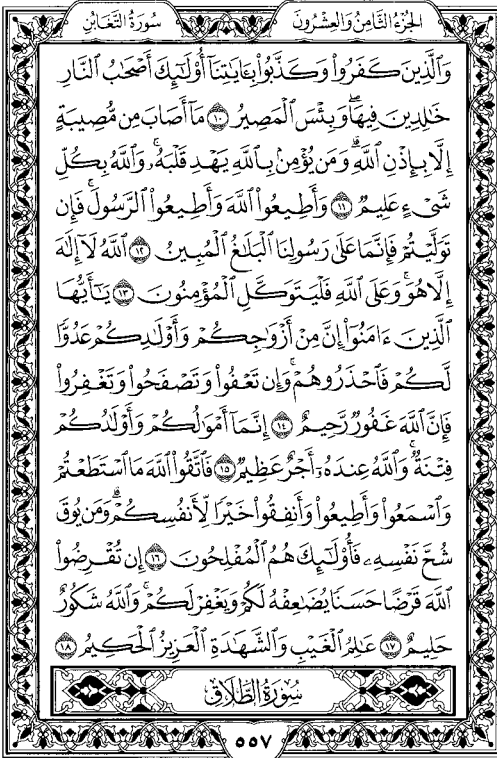 سُورَةُ التَّغَابُنِ
الجُزْءُ الثَّامِنُ وَالعِشْرُونَ
وَٱلَّذِينَ كَفَرُوا۟ وَكَذَّبُوا۟ بِـَٔايَـٰتِنَآ أُو۟لَـٰٓئِكَ أَصْحَـٰبُ ٱلنَّارِ
خَـٰلِدِينَ فِيهَا ۖ وَبِئْسَ ٱلْمَصِيرُ ١٠ مَآ أَصَابَ مِن مُّصِيبَةٍ
إِلَّا بِإِذْنِ ٱللَّهِ ۗ وَمَن يُؤْمِنۢ بِٱللَّهِ يَهْدِ قَلْبَهُۥ ۚ وَٱللَّهُ بِكُلِّ
شَىْءٍ عَلِيمٌ ١١ وَأَطِيعُوا۟ ٱللَّهَ وَأَطِيعُوا۟ ٱلرَّسُولَ ۚ فَإِن
تَوَلَّيْتُمْ فَإِنَّمَا عَلَىٰ رَسُولِنَا ٱلْبَلَـٰغُ ٱلْمُبِينُ ١٢ ٱللَّهُ لَآ إِلَـٰهَ
إِلَّا هُوَ ۚ وَعَلَى ٱللَّهِ فَلْيَتَوَكَّلِ ٱلْمُؤْمِنُونَ ١٣ يَـٰٓأَيُّهَا
ٱلَّذِينَ ءَامَنُوٓا۟ إِنَّ مِنْ أَزْوَٰجِكُمْ وَأَوْلَـٰدِكُمْ عَدُوًّا
لَّكُمْ فَٱحْذَرُوهُمْ ۚ وَإِن تَعْفُوا۟ وَتَصْفَحُوا۟ وَتَغْفِرُوا۟
فَإِنَّ ٱللَّهَ غَفُورٌ رَّحِيمٌ ١٤ إِنَّمَآ أَمْوَٰلُكُمْ وَأَوْلَـٰدُكُمْ
فِتْنَةٌ ۚ وَٱللَّهُ عِندَهُۥٓ أَجْرٌ عَظِيمٌ ١٥ فَٱتَّقُوا۟ ٱللَّهَ مَا ٱسْتَطَعْتُمْ
وَٱسْمَعُوا۟ وَأَطِيعُوا۟ وَأَنفِقُوا۟ خَيْرًا لِّأَنفُسِكُمْ ۗ وَمَن يُوقَ
شُحَّ نَفْسِهِۦ فَأُو۟لَـٰٓئِكَ هُمُ ٱلْمُفْلِحُونَ ١٦ إِن تُقْرِضُوا۟
ٱللَّهَ قَرْضًا حَسَنًا يُضَـٰعِفْهُ لَكُمْ وَيَغْفِرْ لَكُمْ ۚ وَٱللَّهُ شَكُورٌ
حَلِيمٌ ١٧ عَـٰلِمُ ٱلْغَيْبِ وَٱلشَّهَـٰدَةِ ٱلْعَزِيزُ ٱلْحَكِيمُ ١٨
سُورَةُ الطَّلَاقِ
٥٥٧